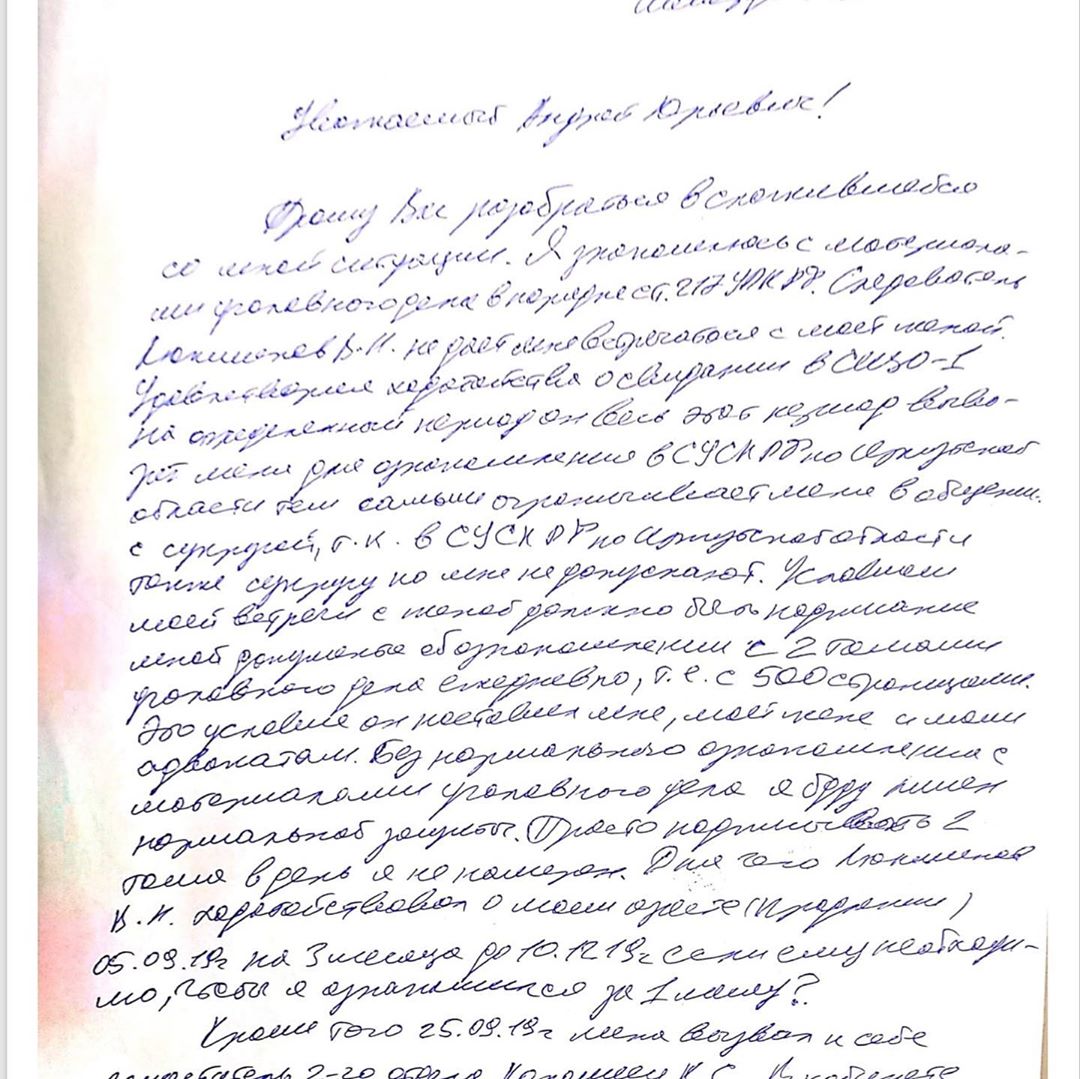 Уважаемый Андрей Юрьевич!
Прошу Вас разобраться в сложившейся
со мной ситуации. Я знакомлюсь с материала-
ми уголовного дела в порядке ст. 217 УПК РФ. Следователь
В.Н. не дает мне встречаться с моей женой.
Удовлетворяя ходатайства о свидании в СИЗО-1
на определенный период он весь этот период выво-
зит меня для ознакомления в СУСК РФ по Иркутской
области тем самым ограничивает меня в общении
с супругой, т.к. в СУСК РФ по Иркутской области
также супругу ко мне не допускают. Условием
моей встречи с женой должно быть подписание
мной документов об ознакомлении с 2 томами
уголовного дела ежедневно, т.е. с 500 страницами.
Это условие он поставил мне, моей жене и моим
адвокатам. Без нормального ознакомления с
материалами уголовного дела я буду лишен
нормальной защиты. Просто подписывать 2
тома в день я не намерен. Для чего
В.Н. ходатайствовал о моем аресте (продлении)
05.09.19г на 3 месяца до 10.12.19г если ему необходи-
мо, чтобы я ознакомился за 1 месяц?
Кроме того 25.09.19г меня вызвал к себе
2-го отдела К.С. В кабинете